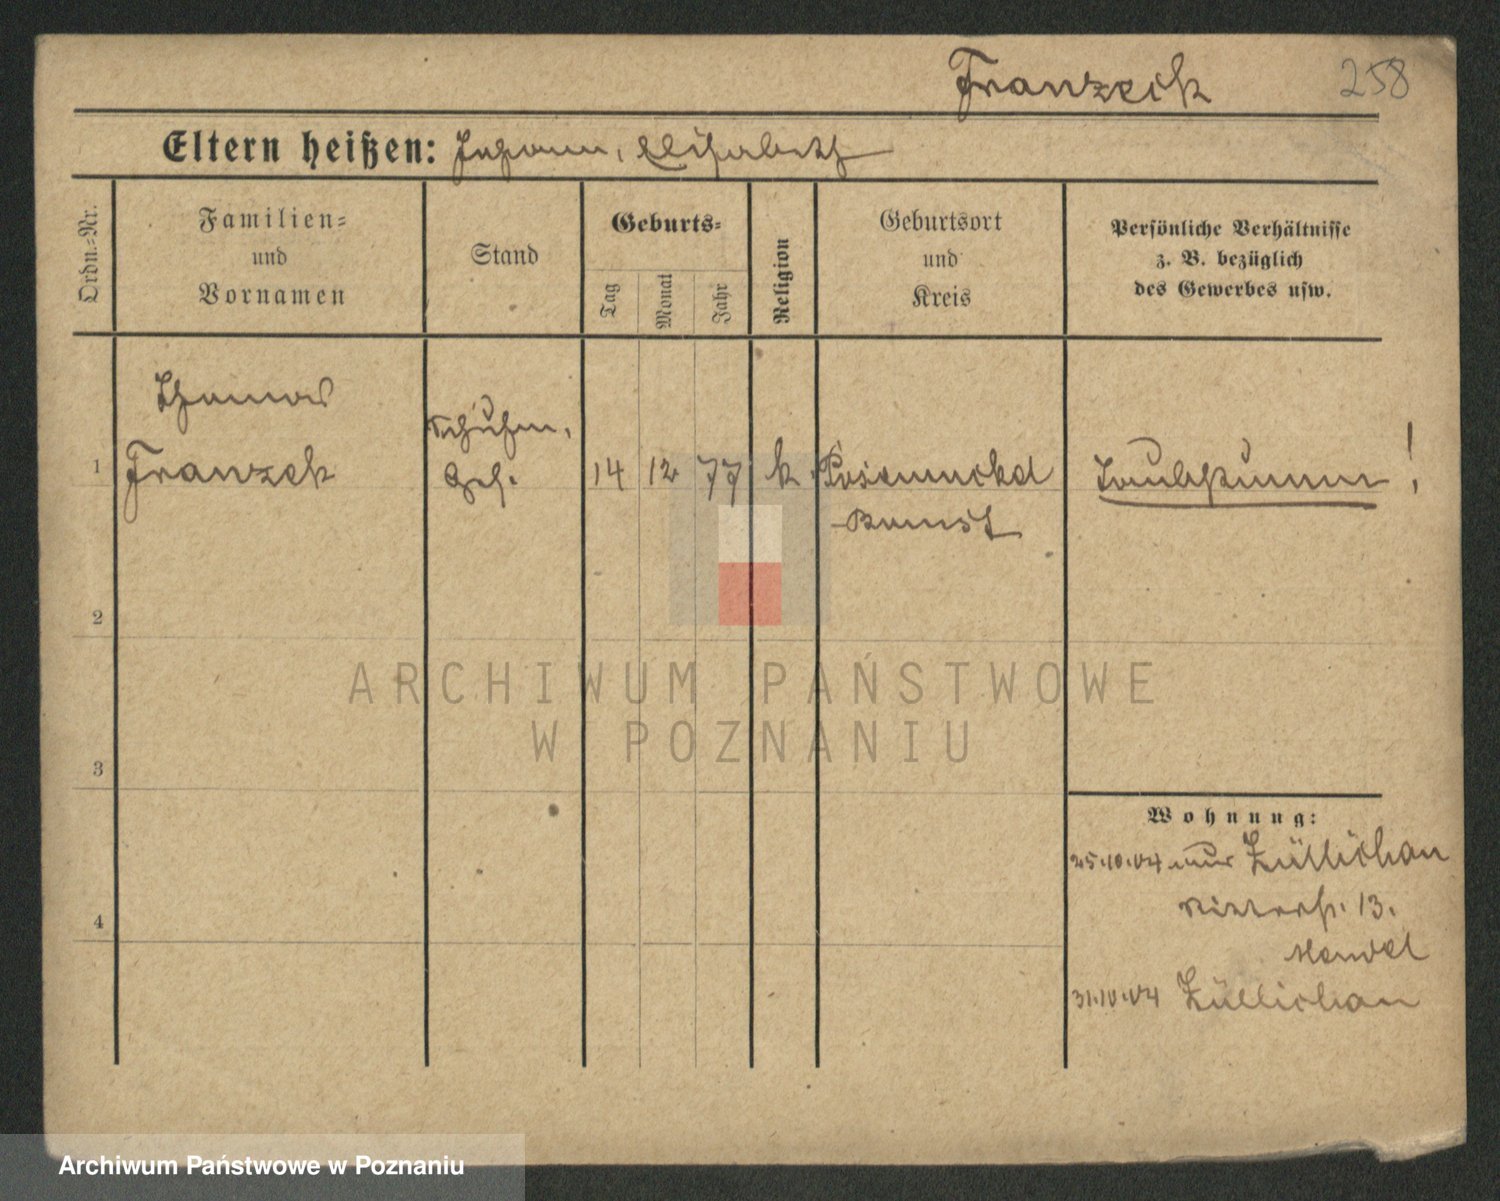 Franzeck
258
Eltern heißen: Johann, Elisabeth
Ordn.=Nr.
Familien=
und
Vornamen
Stand
Geburts=
Tag
Monat
Jahr
Religion
Geburtsort
und
Kreis
Persönliche Verhältnisse
z. B. bezüglich
des Gewerbes usw.
Thomas
Schuhm.
1 Franzek Ges. 14 12 77 k. Taubstumm!
Bomst
2
3
4
Wohnung:
25.10.04 nur Züllichau
13.
31.10.04 Züllichau
ARCHIWUM PAŃSTWOWE
W POZNANIU
Archiwum Państwowe w Poznaniu